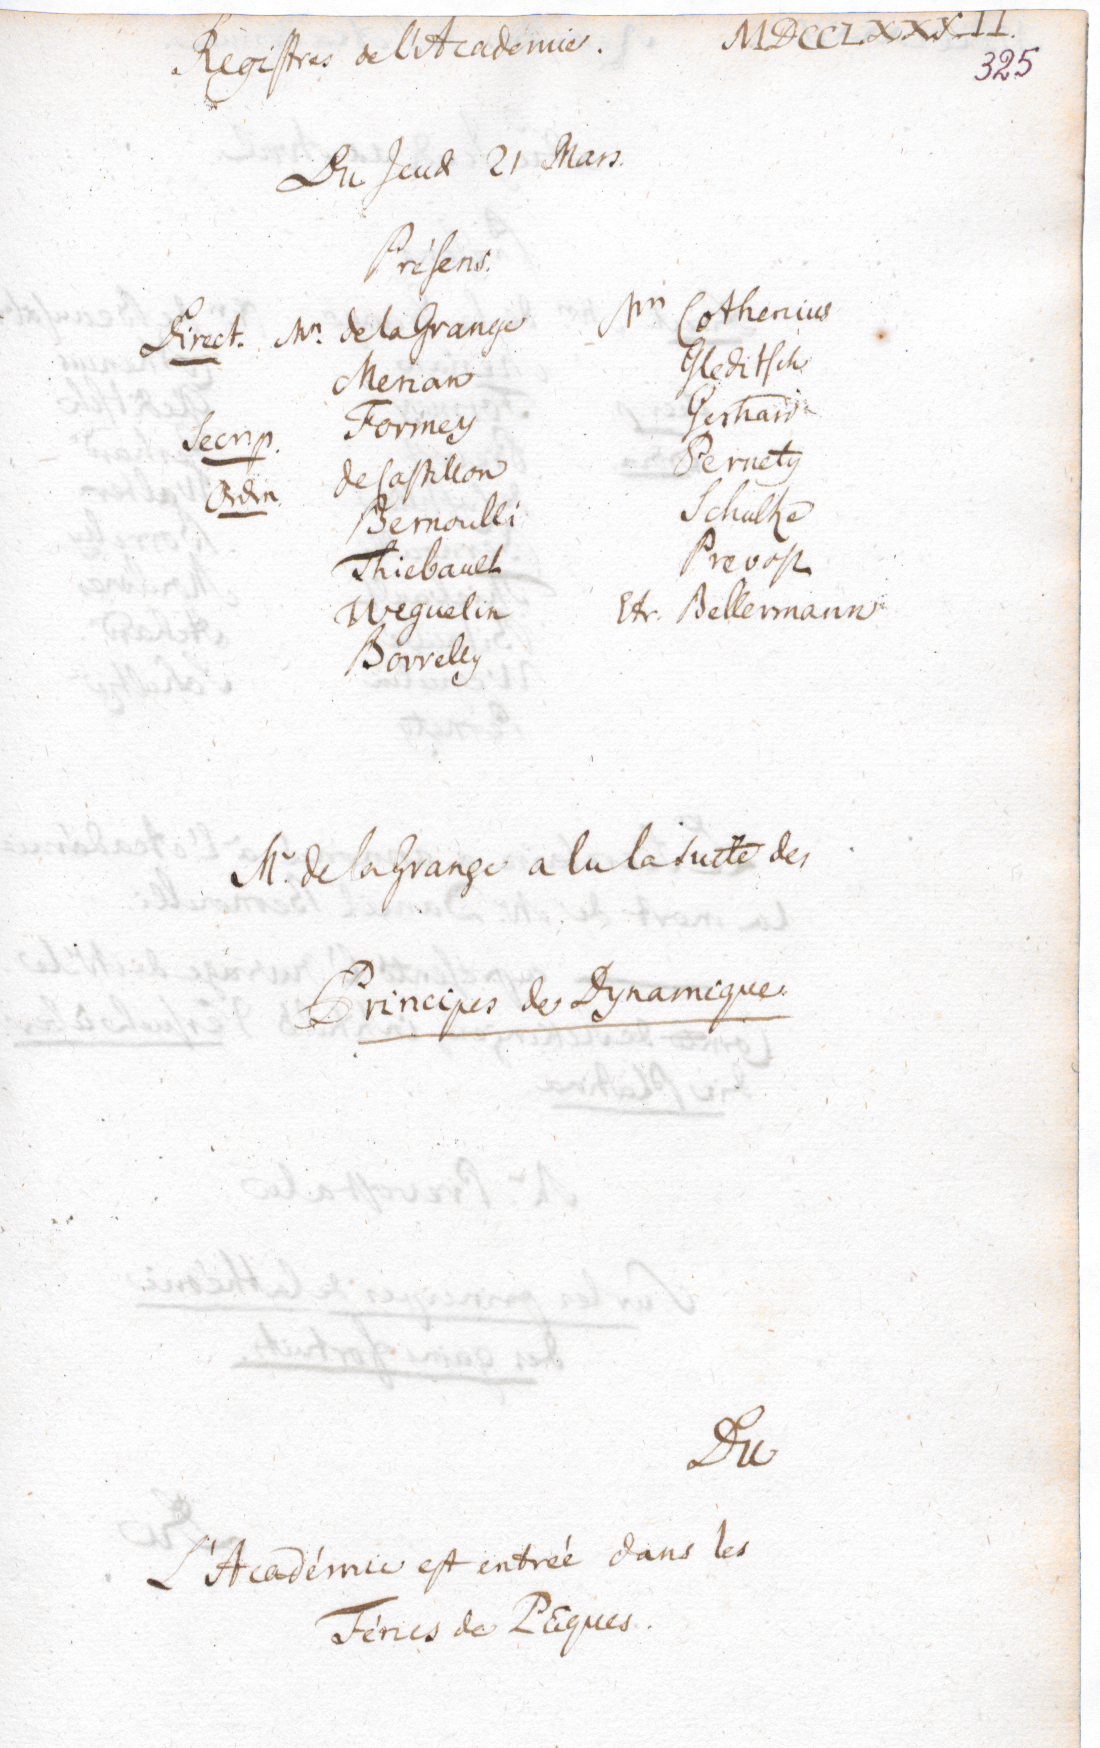 Registres de l'Academie. MDCCLXXXII.
325
Du Jeud 21 Mars.
Présens.
Direct. Mrs. de la Grange
Merian
Secrip. Formey
Ordin. de Castillon
Bernoulli
Thiebault
Weguelin
Borrelly
Mrs Cothenius
Gleditsch
Gerhard
Pernety
Schultze
Prevost
Etr. Bellermann
Mr. de la Grange a lu la suite des
Principes de Dynamique.
Du
L'Académie est entrée dans les
Féries de Pâques.